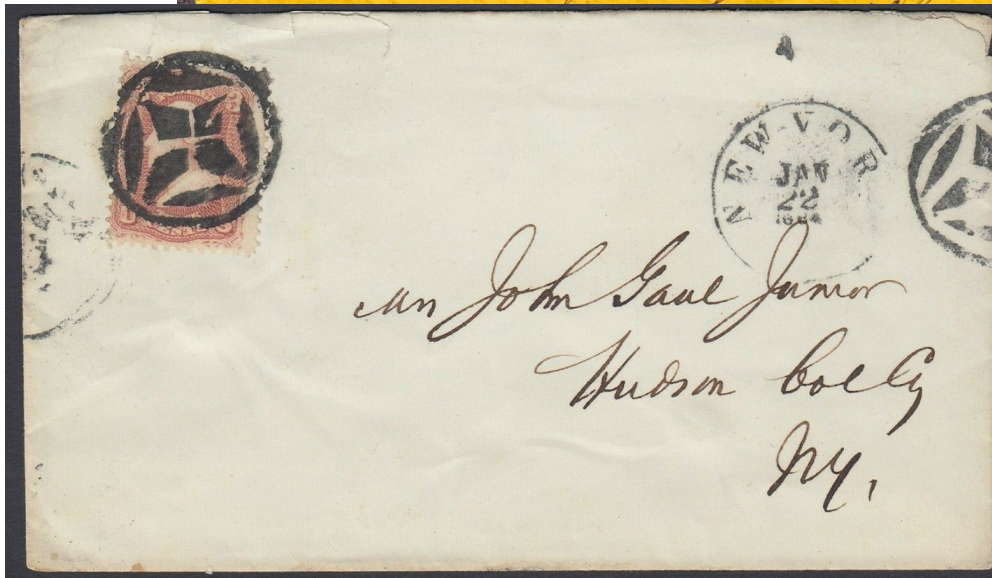 NEW-YOR
JAN
22
Mr John Gaul Junior
Hudson Col Cy
NY.